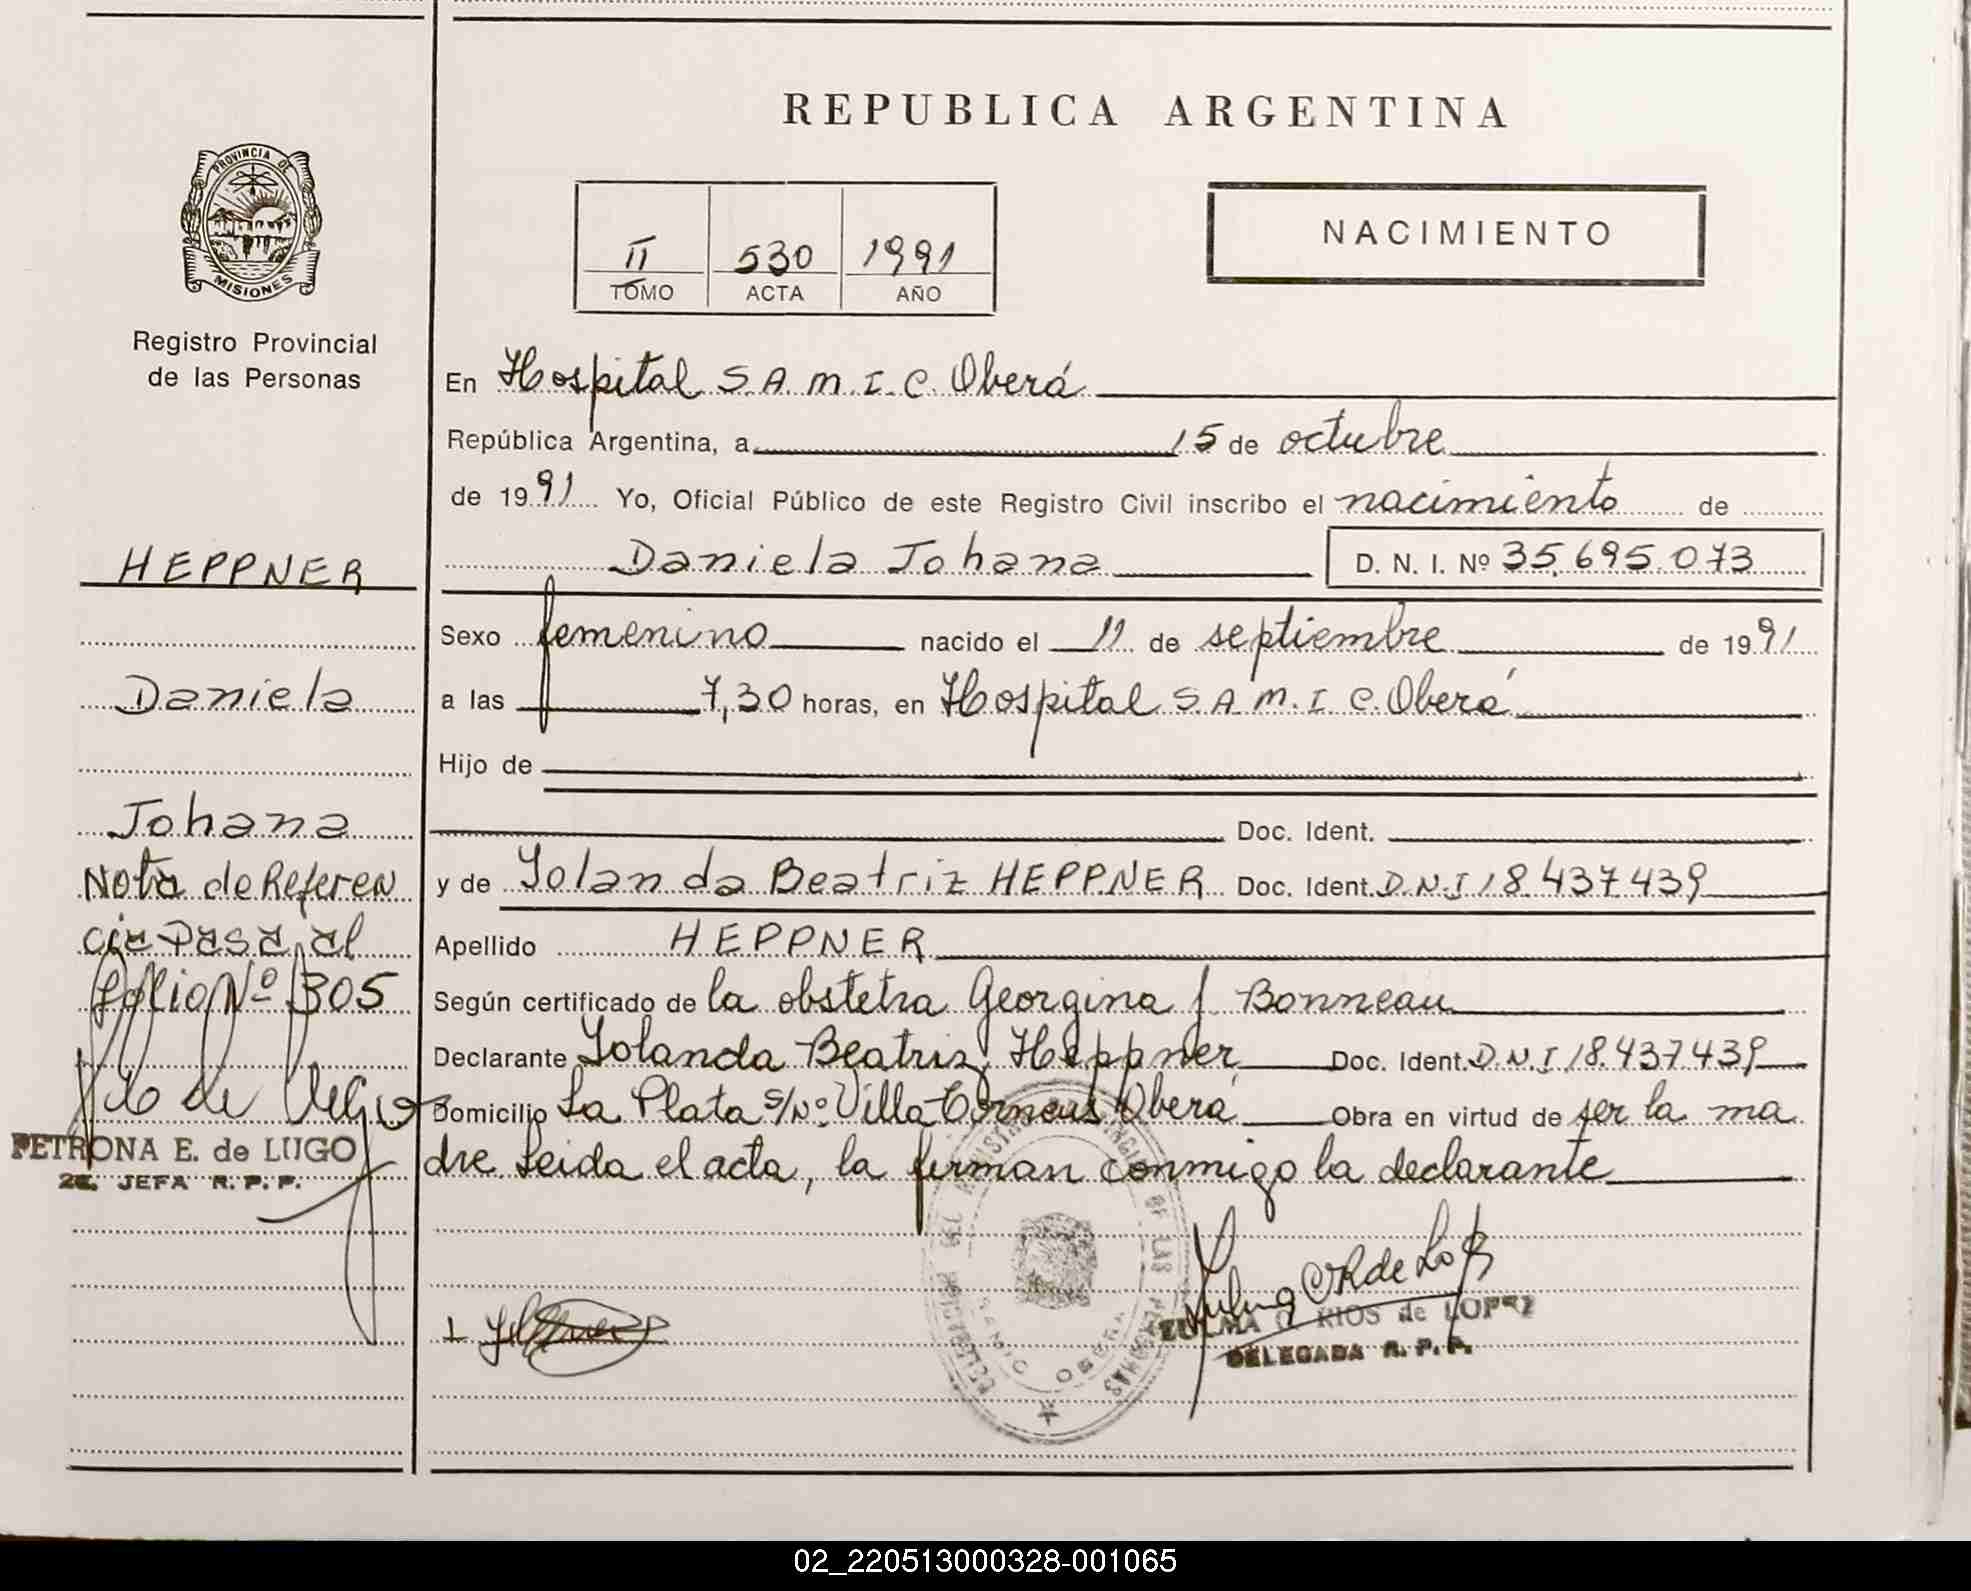 REPUBLICA ARGENTINA
PROVINCIA DE
MISIONES
Registro Provincial
de las Personas
II 530 1991
TOMO ACTA AÑO
NACIMIENTO
En Hospital S.A.M.I.C. Oberá
República Argentina, a 15 de octubre
de 1991 Yo, Oficial Público de este Registro Civil inscribo el nacimiento de
Daniela Johana D. N. I. Nº 35.695.073
Sexo femenino nacido el 11 de septiembre de 1991
a las 7,30 horas, en Hospital S.A.M.I.C. Oberá
Hijo de
Doc. Ident.
y de Yolanda Beatriz HEPPNER Doc. Ident. D.N.I 18.437439
Apellido HEPPNER
Según certificado de la obstetra Georgina J Bonneau
Declarante Yolanda Beatriz Heppner Doc. Ident. D.N.I 18.437439
Domicilio La Plata s/Nº Villa Oberá Obra en virtud de ser la ma
dre Leida el acta, la firman conmigo la declarante
HEPPNER
Daniela
Johana
Nota de Referen
cia Pasa al
Folio Nº 305
PETRONA E. de LUGO
2E. JEFA R. P. P.
ZULMA C. RIOS de LOPEZ
DELEGADA R. P. P.
DE LAS PERSONAS
OBERA
02_220513000328-001065